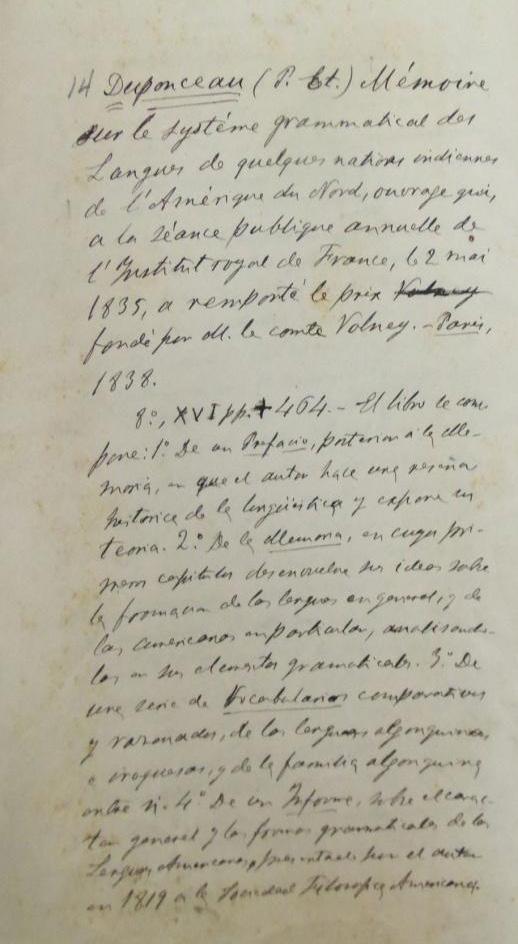 14 Duponceau (P. Et.) Mémoire
sur le système grammatical des
Langues de quelques nations indiennes
de l'Amérique du Nord, ouvrage qui,
a la séance publique annuelle de
l'Institut royal de France, le 2 mai
1835, a remporté le prix Volney
fondé par M. le comte Volney. - Paris,
1838.
8º, XVI pp. + 464. - El libro se com-
pone: 1º De un Prefacio, posterior á la Me-
moria, en que el autor hace una reseña
historica de la lingüistica y expone su
teoria. 2º De la Memoria, en cuyos pri-
meros capitulos desenvuelve sus ideas sobre
la formacion de las lenguas en general, y de
las americanas en particular, analizando-
las en sus elementos gramaticales. 3º De
una serie de Vocabularios comparativos
y razonados, de las lenguas algonquinas
e iroquesas, y de la familia algonquina
entre si. 4º De un Informe, sobre el carac-
ter general y las formas gramaticales de las
Lenguas Americanas, presentado por el autor
en 1819 a la Sociedad Filosofica Americana.